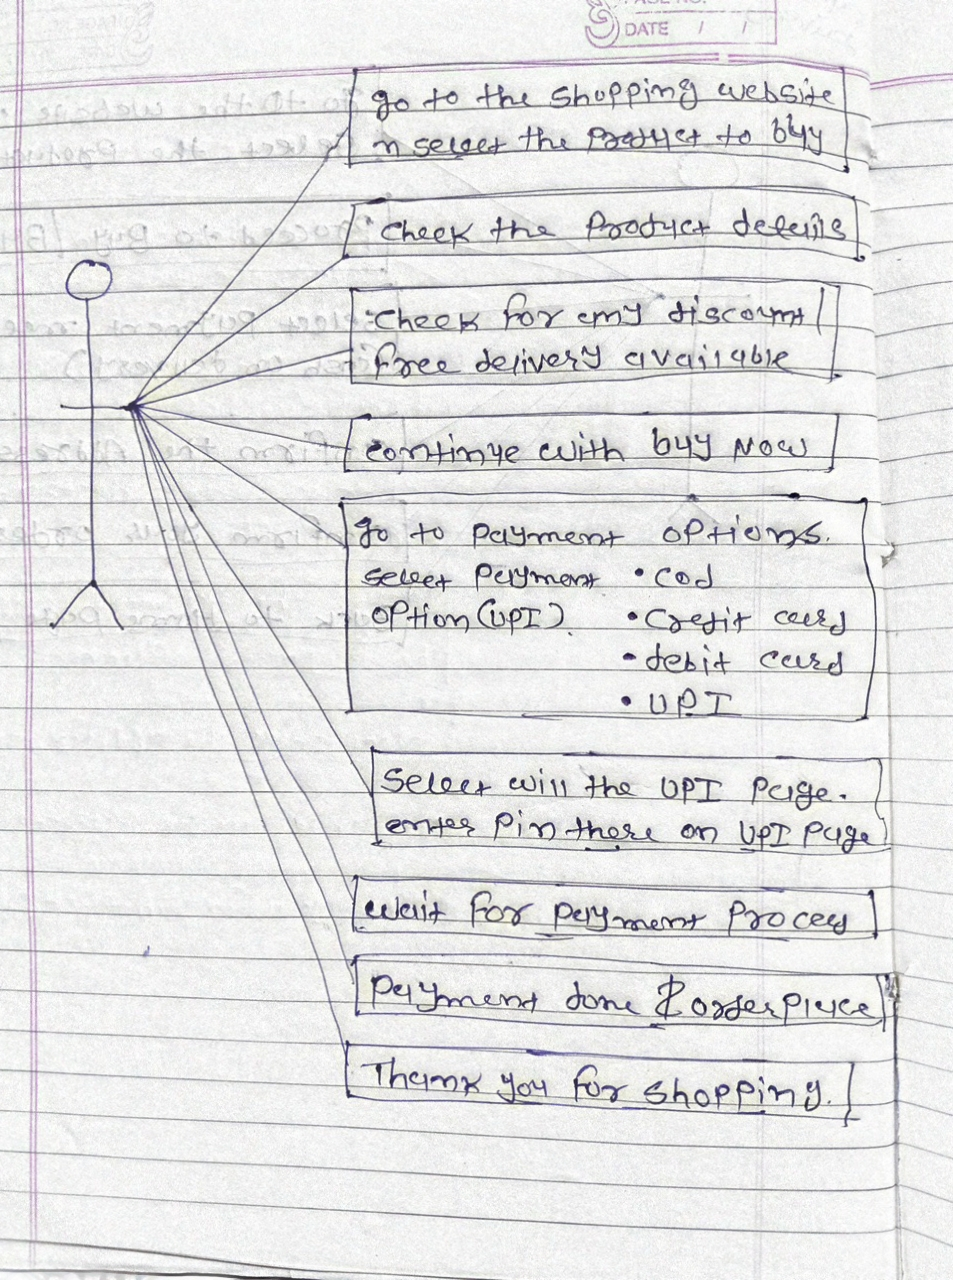 PAGE NO.
DATE / /
go to the shopping website
n select the product to buy
Check the Product details
Check for any discount/
free delivery available
continue with buy now
go to payment options.
select payment • cod
option (UPI). • Credit card
• debit card
• UPI
Select will the UPI page.
enter pin there on UPI page
wait for payment process
Payment done & order place
Thank you for shopping.